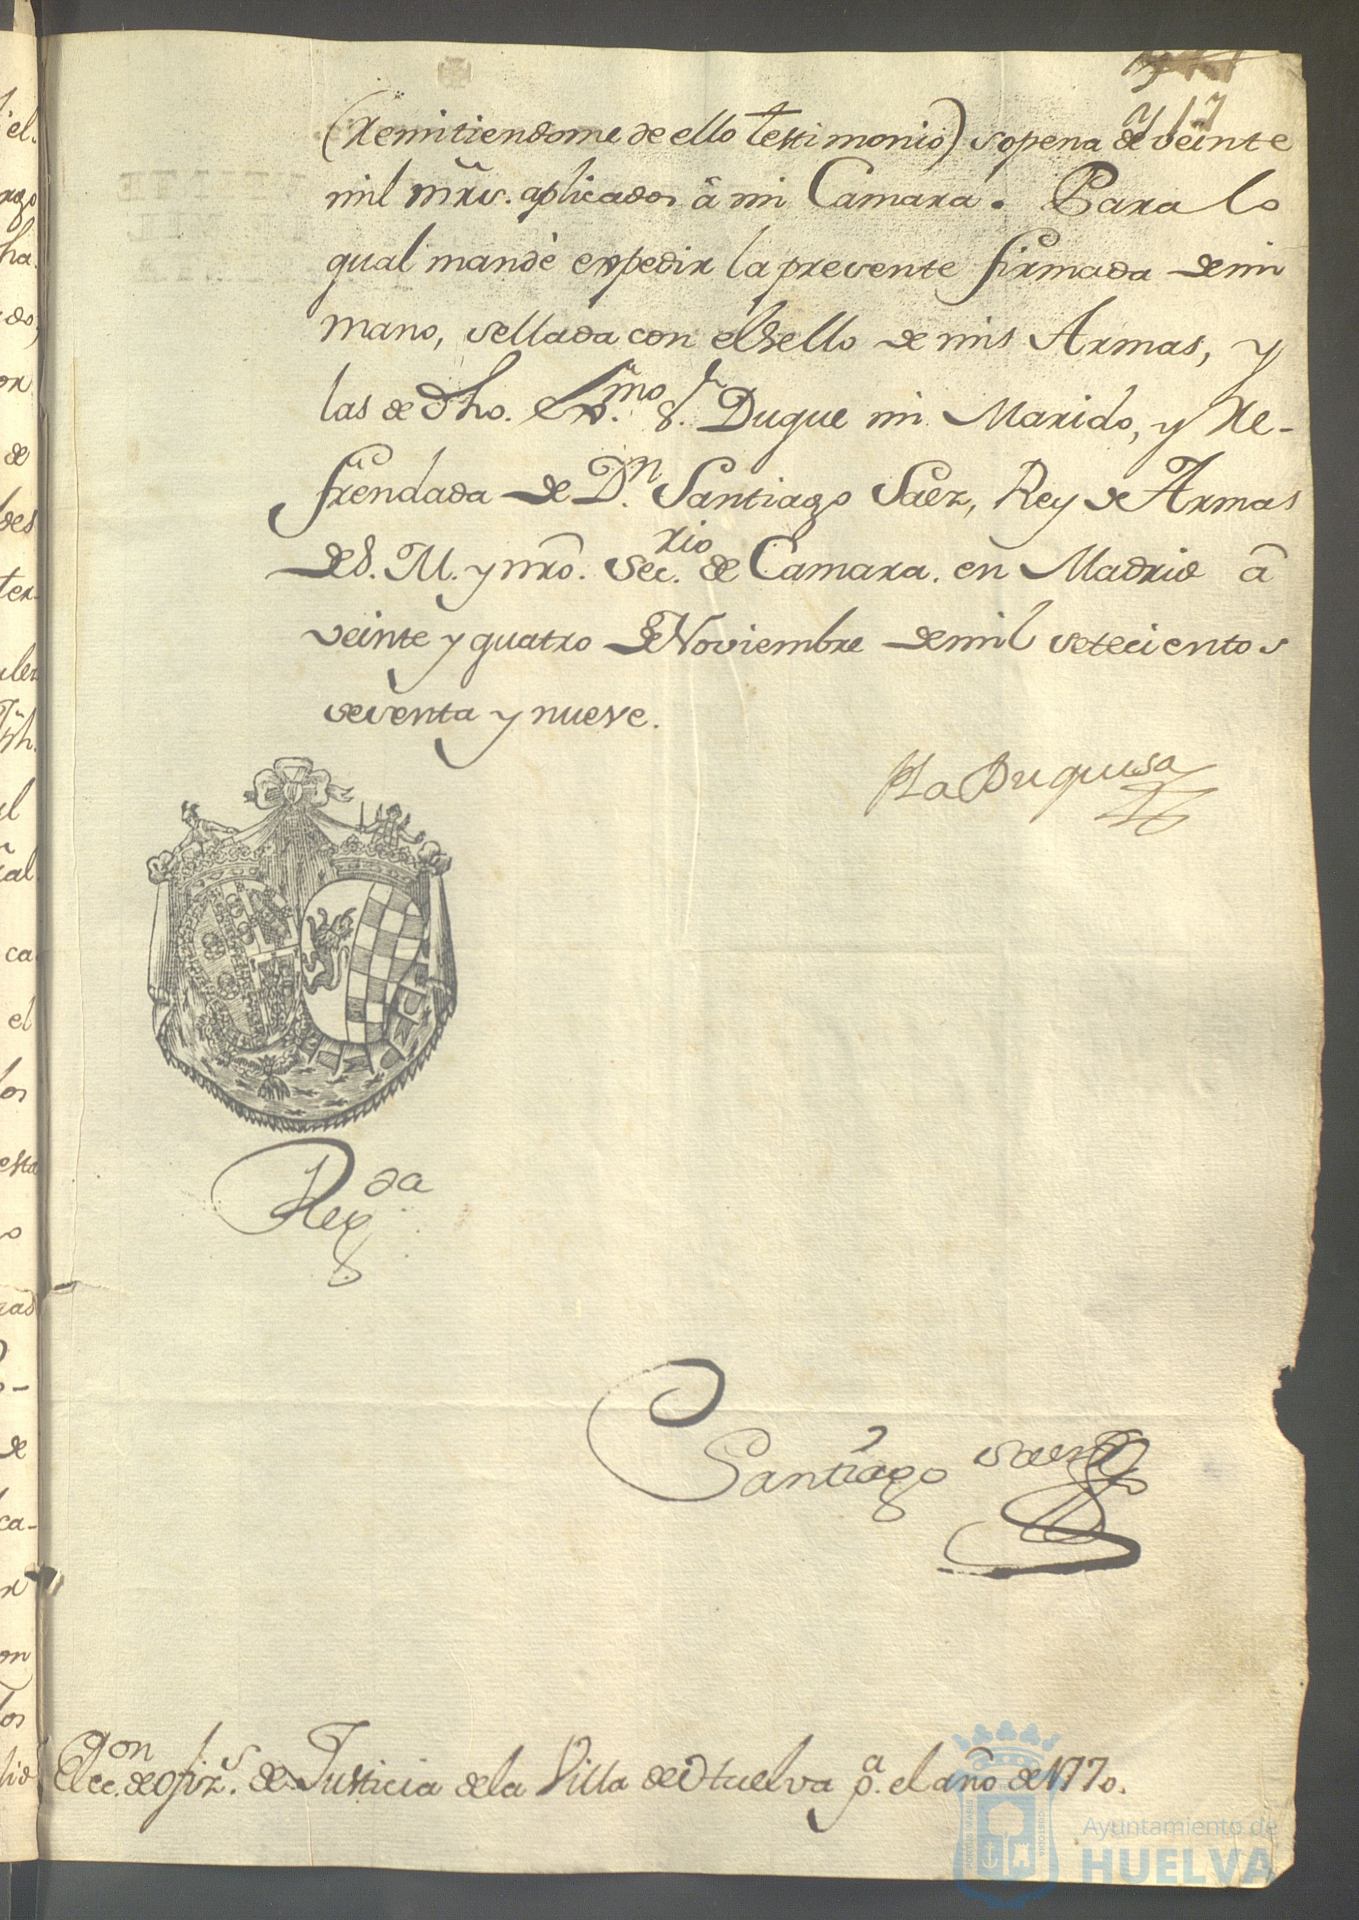 (Remitiendome de ello testimonio) so pena de veinte
mil mrs. aplicados â mi Camara. Para lo
qual mandè expedir la presente firmada de mi
mano, sellada con el Sello de mis Armas, y
las de dho. Exmo. Sr. Duque mi Marido, y Re-
frendada de Dn. Santiago Saez, Rey de Armas
de S. M. y nro. Secrio. de Camara. en Madrid â
veinte y quatro de Noviembre de mil setecientos
sesenta y nueve.
La Duquesa
Regda
Santiago Saenz
Eleccon. de ofizs. de Justicia de la Villa de Huelva pa. el año de 1770.
Ayuntamiento de
HUELVA